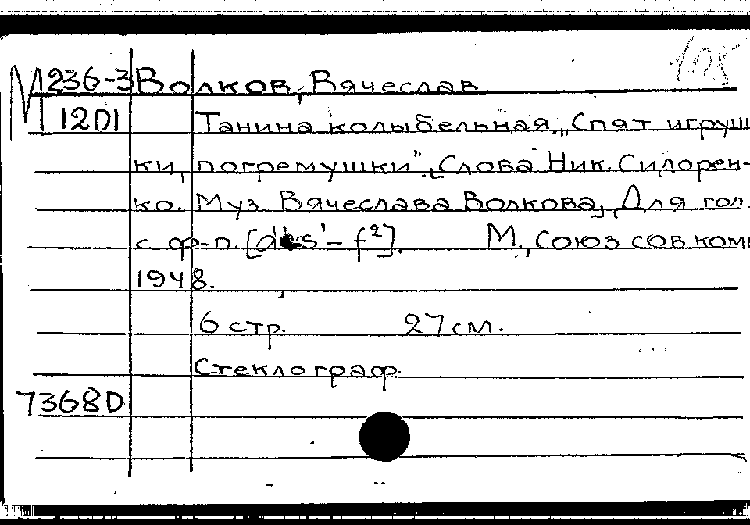 М 236-3 Волков, Вячеслав
1201 Танина колыбельная. „Спят игруш
ки, погремушки". Слова Ник. Сидорен-
ко. Муз. Вячеслава Волкова, Для гол.
с ф-п. [des' - f²]. М., Союз сов комп
1948.
6 стр. 27 см.
Стеклограф.
7368D